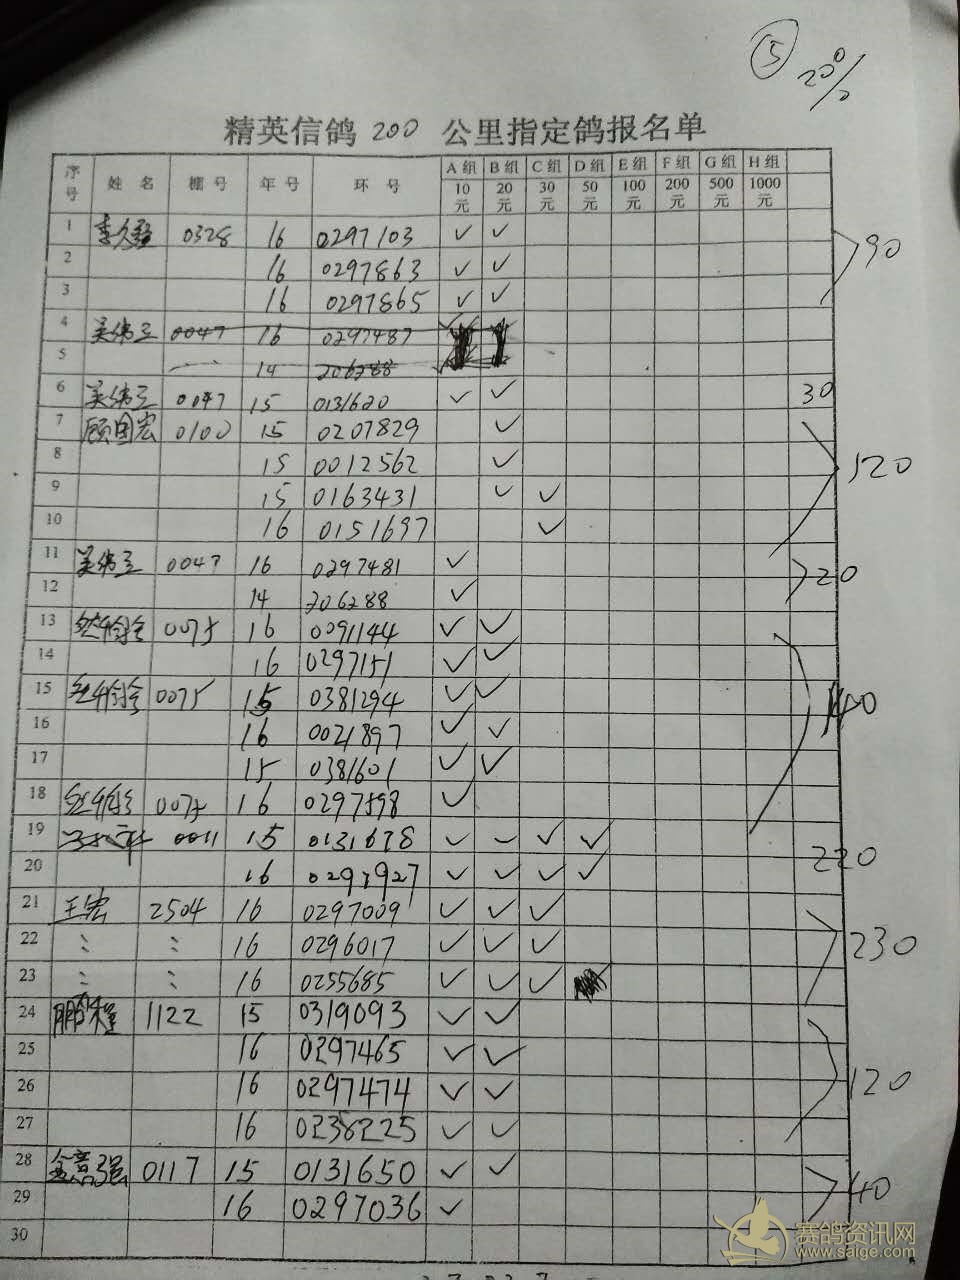 ⑤ 20%
精英信鸽 200 公里指定鸽报名单
序号 姓名 棚号 年号 环号 A组 10元 B组 20元 C组 30元 D组 50元 E组 100元 F组 200元 G组 500元 H组 1000元
1 0328 16 0297103 ✓ ✓ 90
2 16 0297863 ✓ ✓
3 16 0297865 ✓ ✓
4 0047 16 0297487
5 14 206288
6 0047 15 0131620 ✓ ✓ 30
7 顾国宏 0100 15 0207829 ✓
8 15 0012562 ✓ 120
9 15 0163431 ✓ ✓
10 16 0151697 ✓
11 0047 16 0297481 ✓ 20
12 14 206288 ✓
13 0075 16 0091144 ✓ ✓
14 16 0297151 ✓ ✓
15 0075 15 0381294 ✓ ✓
16 16 0021897 ✓ ✓
17 15 0381601 ✓ ✓
18 0075 16 0297598 ✓
19 0011 15 0131678 ✓ ✓ ✓ ✓ 220
20 16 0293927 ✓ ✓ ✓ ✓
21 王宏 2504 16 0297009 ✓ ✓ ✓
22 〃 〃 16 0296017 ✓ ✓ ✓ 230
23 〃 〃 16 0255685 ✓ ✓ ✓
24 1122 15 0319093 ✓ ✓
25 16 0297465 ✓ ✓
26 16 0297474 ✓ ✓ 120
27 16 0238225 ✓ ✓
28 0117 15 0131650 ✓ ✓ 40
29 16 0297036 ✓
30
赛鸽资讯网
www.saige.com